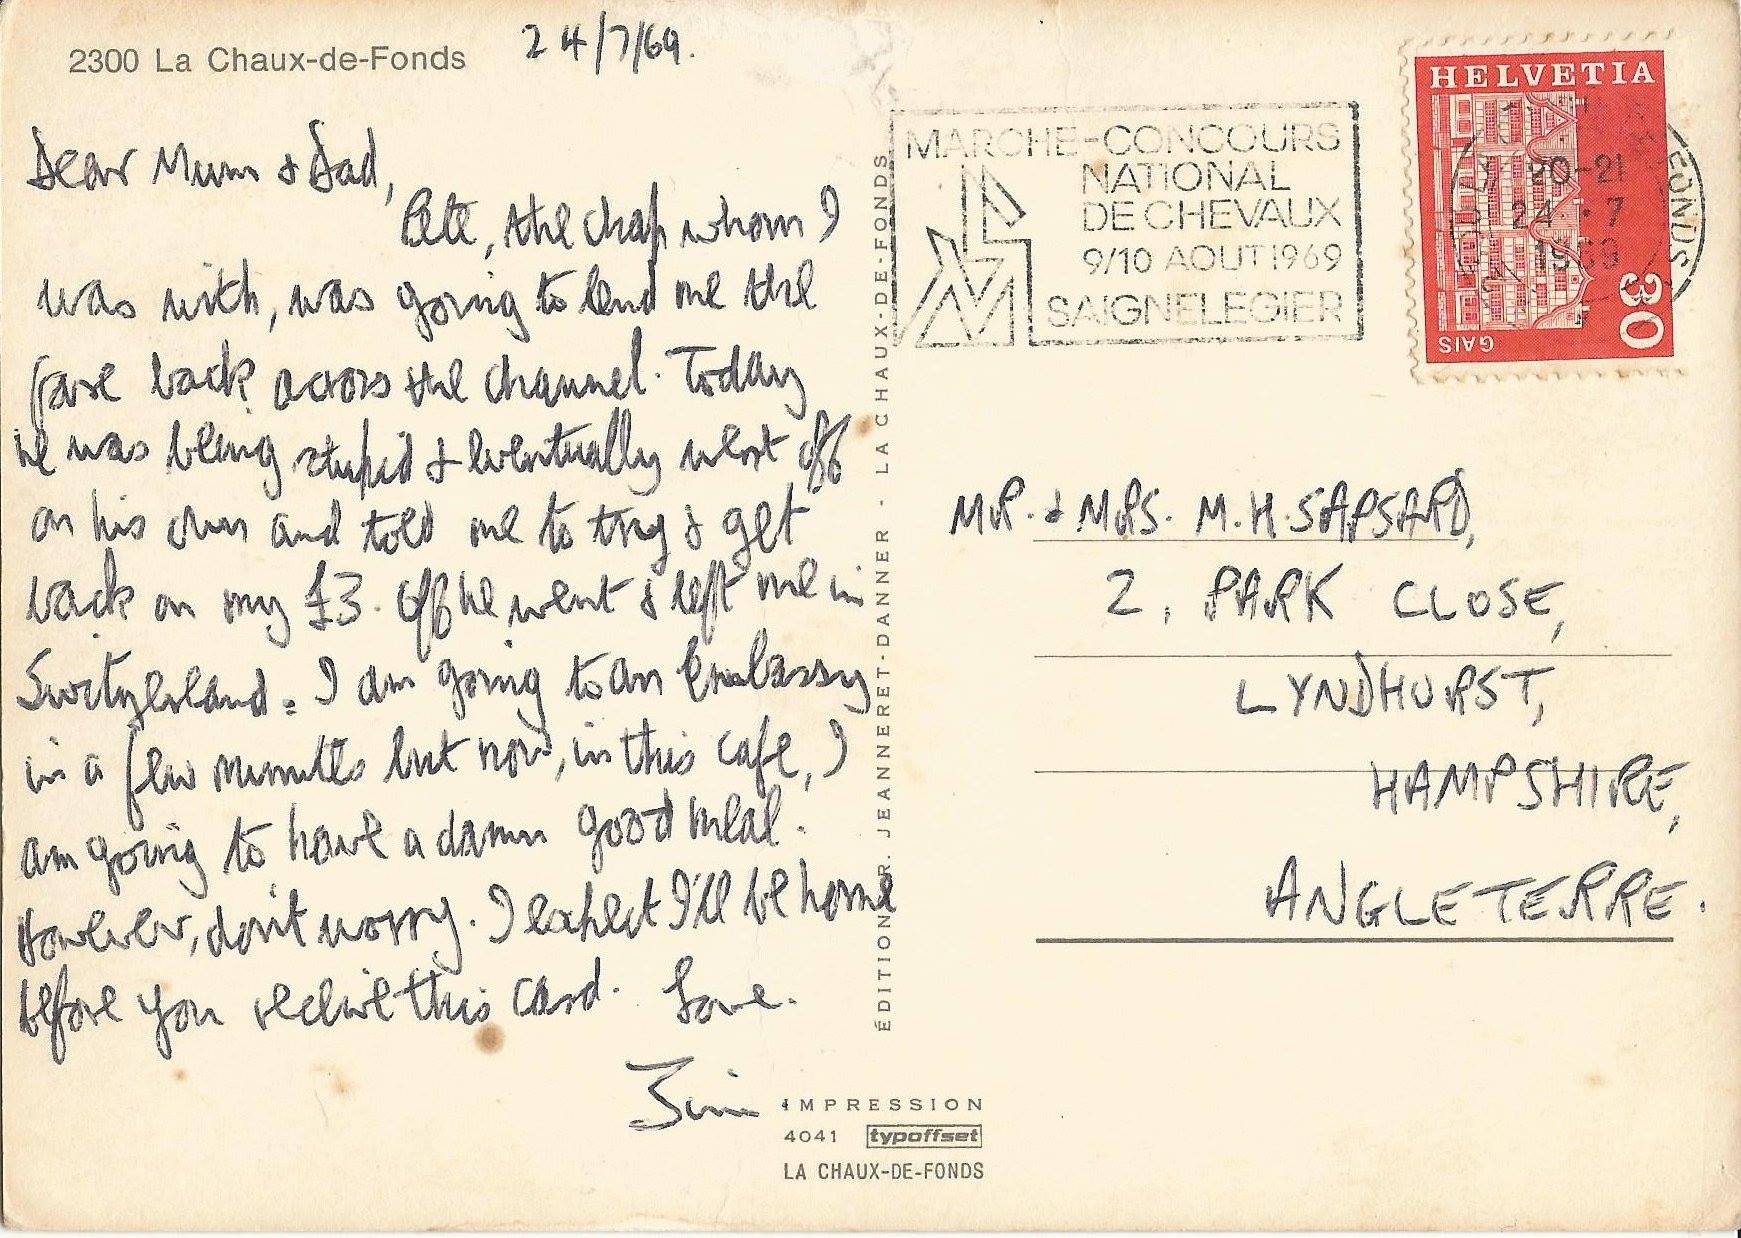 2300 La Chaux-de-Fonds
24/7/69.
Dear Mum & Dad,
Pete, the chap whom I
was with, was going to lend me the
fare back across the channel. Today
he was being stupid & eventually went off
on his own and told me to try & get
back on my £3. Off he went & left me in
Switzerland. I am going to an embassy
in a few minutes but now, in this cafe, I
am going to have a damn good meal.
However, don't worry. I expect I'll be home
before you receive this card. Love.
Jim
ÉDITION R. JEANNERET-DANNER - LA CHAUX-DE-FONDS
IMPRESSION
4041 typoffset
LA CHAUX-DE-FONDS
MARCHE-CONCOURS
NATIONAL
DE CHEVAUX
9/10 AOUT 1969
SAIGNELEGIER
HELVETIA
20-21
24.-7
1969
FONDS
30
GAIS
MR. & MRS. M.H. SAPSARD,
2, PARK CLOSE,
LYNDHURST,
HAMPSHIRE,
ANGLETERRE.